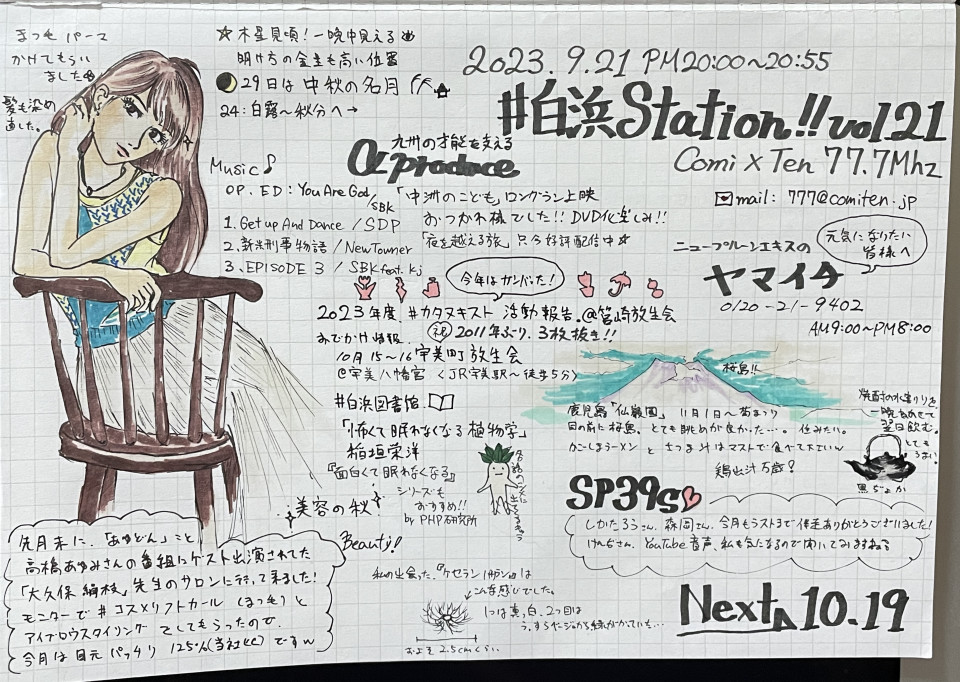 まつ毛パーマ
かけてもらい
ました
髪も染め
直した。
☆木星見頃!一晩中見える
明け方の金星も高い位置
29日は中秋の名月
24:白露〜秋分へ→
2023.9.21 PM20:00〜20:55
#白浜Station!! vol.21
Comi×Ten 77.7Mhz
mail: 777@comiten.jp
九州の才能を支える
α produce
「中洲のこども」ロングラン上映
おつかれ様でした!! DVD化楽しみ!!
「夜を越える旅」只今好評配信中☆
Music♪
OP. ED: You Are God/SBK
1. Get up And Dance / SDP
2. 新米刑事物語 / New Towner
3. EPISODE 3 / SBK feat. Kj
元気になりたい
皆様へ
ニュープルーンエキスの
ヤマイチ
0120-21-9402
AM9:00〜PM8:00
今年はガンバった!
2023年度 #カタヌキスト 活動報告 @筥崎放生会
祝 2011年ぶり、3枚抜き!!
おでかけ情報
10月15〜16 宇美町 放生会
@宇美八幡宮 <JR宇美駅〜徒歩5分>
桜島!!
鹿児島「仙巌園」11月1日〜菊まつり
目の前に桜島。とても眺めが良かった…。住みたい。
かごしまラーメンとさつま汁はマストで食べて下さいw
鶏出汁万歳?
焼酎のお湯わりを
一晩ねかせて
翌日飲む。
とても
うまい
黒ぢょか
#白浜図書館
「怖くて眠れなくなる植物学」
稲垣栄洋
『面白くて眠れなくなる』
シリーズも
おすすめ!!
by PHP研究所
美容の秋
Beauty!
SP39s
しかたろうさん、森岡さん、今月もラストまで伴走ありがとうございました!
けんぢさん、YouTube音声、私も気になるので聞いてみますねる
先月末に、「あゆどん」こと
高橋あゆみさんの番組にゲスト出演された
「大久保 絹枝」先生のサロンに行って来ました!
モニターで#コスメリフトカール(まつ毛)と
アイブロウスタイリングをしてもらったので
今月は目元パッチリ 125%(当社比)ですw
私の出会った、『ケセランパサラン』は
こんな感じでした。
1つは真っ白、2つ目は
およそ2.5cmくらい
Next 10.19